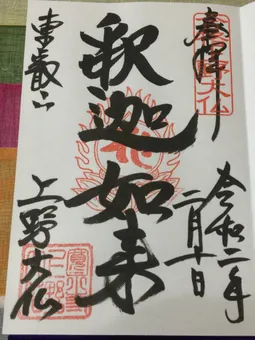 奉拝
上野大仏
令和二年
二月十日
釈迦如来
東叡山
上野大仏